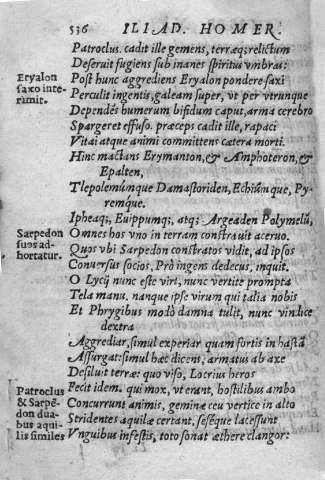 536 ILIAD. HOMER.
Patroclus. cadit ille gemens, terræq; relictum
Deseruit fugiens sub inanes spiritus vmbras:
Eryalon
saxo inte-
rimit.
Post hunc aggrediens Eryalon pondere saxi
Perculit ingentis, galeam super, vt per vtrunque
Dependēs humerum bifidum caput, arma cerebro
Spargeret effuso. præceps cadit ille, rapaci
Vitai atque animi committens cætera morti.
Hinc mactans Erymanton, & Amphoteron, &
Epalten,
Tlepolemúnque Damastoriden, Echiúnque, Py-
remque.
Ipheaq;, Euippumq;, atq; Argeaden Polymelū,
Sarpedon
suos ad-
hortatur.
Omnes hos vno in terram construit aceruo.
Quos vbi Sarpedon constratos vidit, ad ipsos
Conuersus socios, Prò ingens dedecus, inquit.
O Lycij nunc este viri, nunc vertite prompta
Tela manu. nanque ipse virum qui talia nobis
Et Phrygibus modò damna tulit, nunc vindice
dextra
Aggrediar, simul experiar quam fortis in hastā
Assurgat: simul hæc dicens, armatus ab axe
Desiluit terræ: quo viso, Locrius heros
Patroclus
& Sarpē-
don dua-
bus aqui-
lis similes
Fecit idem. qui mox, vt erant, hostilibus ambo
Concurrunt animis, geminæ ceu vertice in alto
Stridentes aquilæ certant, seséque lacessunt
Vnguibus infestis, toto sonat æthere clangor: